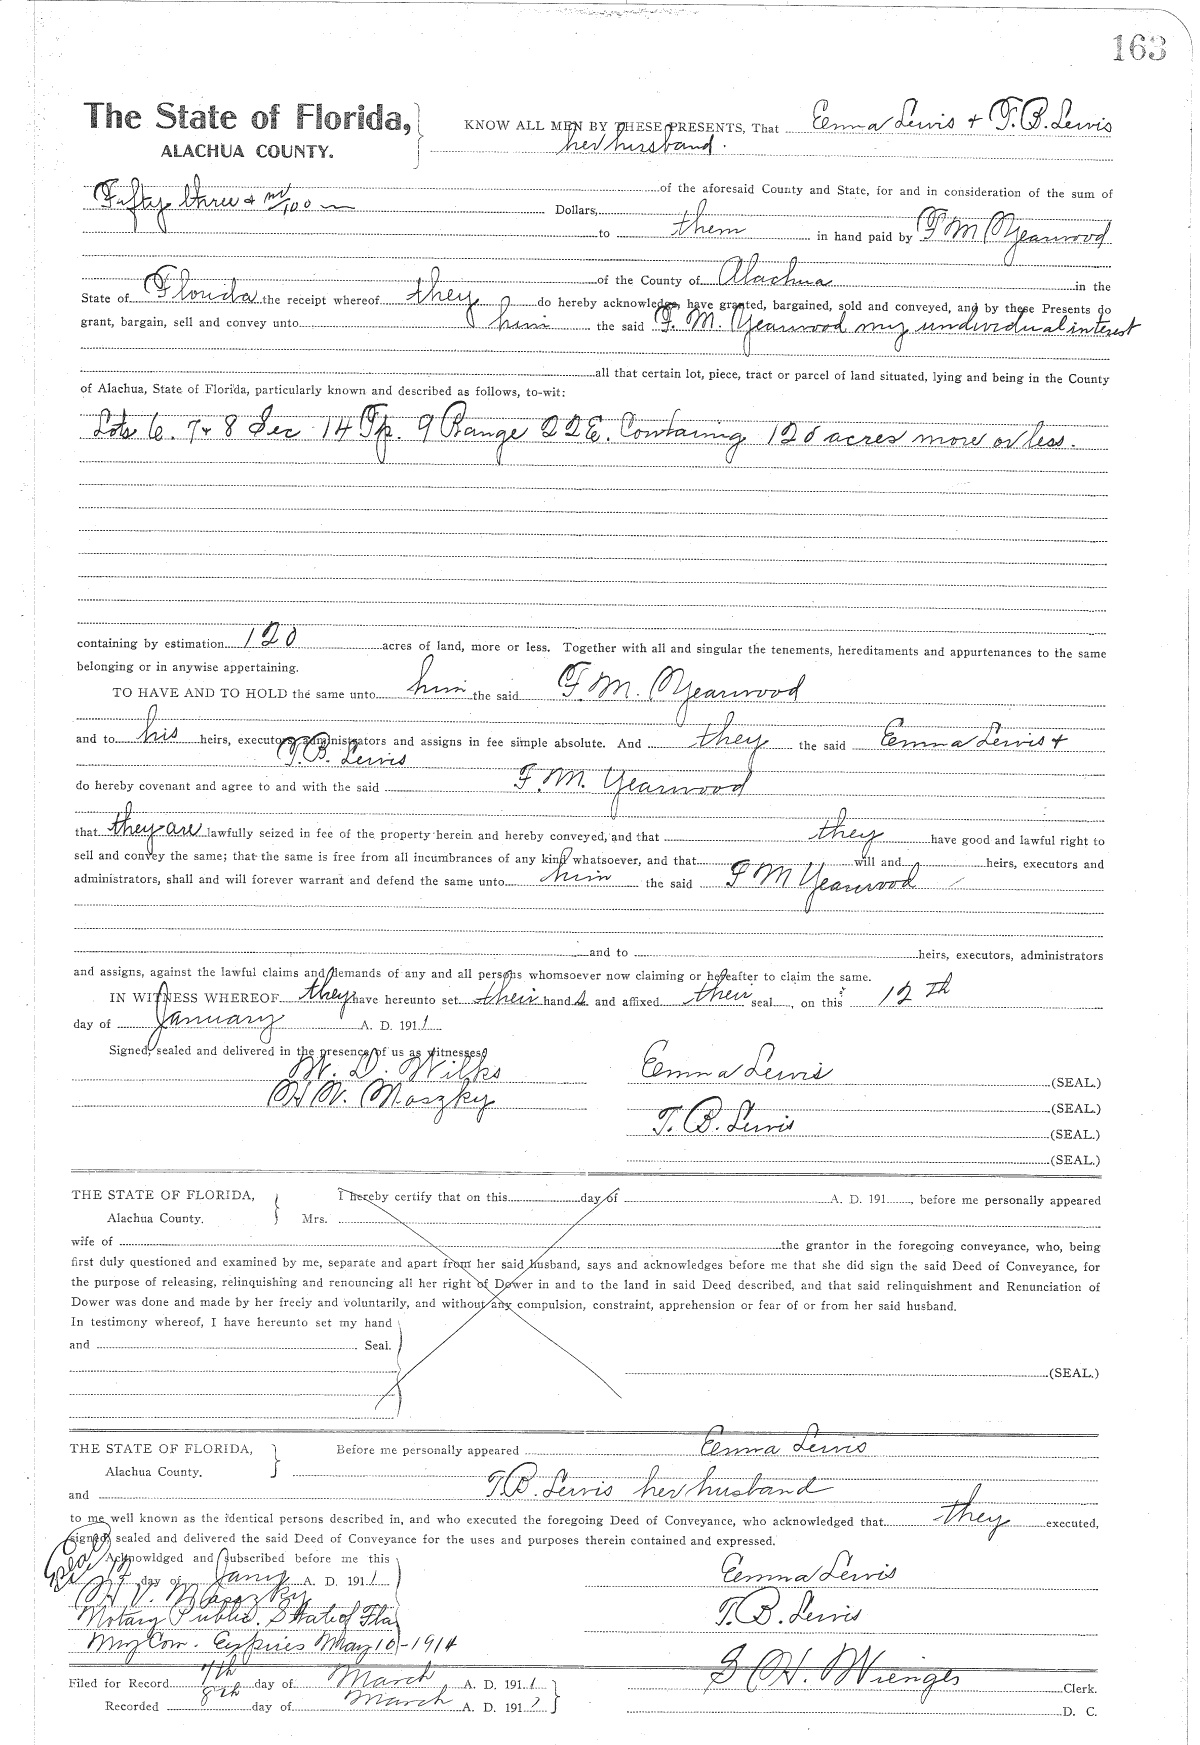 163
The State of Florida,
ALACHUA COUNTY.
KNOW ALL MEN BY THESE PRESENTS, That Emma Lewis & T. B. Lewis
her husband.
of the aforesaid County and State, for and in consideration of the sum of
Fifty three & no/100 Dollars,
to them in hand paid by F M Yearwood
of the County of Alachua in the
State of Florida the receipt whereof they do hereby acknowledge, have granted, bargained, sold and conveyed, and by these Presents do
grant, bargain, sell and convey unto him the said F. M. Yearwood my undividual interest
all that certain lot, piece, tract or parcel of land situated, lying and being in the County
of Alachua, State of Florida, particularly known and described as follows, to-wit:
Lots 6. 7 & 8 Sec 14 Tp. 9 Range 22E. Containing 120 acres more or less.
containing by estimation 120 acres of land, more or less. Together with all and singular the tenements, hereditaments and appurtenances to the same
belonging or in anywise appertaining.
TO HAVE AND TO HOLD the same unto him the said F. M. Yearwood
and to his heirs, executors, administrators and assigns in fee simple absolute. And they the said Emma Lewis &
T. B. Lewis
do hereby covenant and agree to and with the said F. M. Yearwood
that they are lawfully seized in fee of the property herein and hereby conveyed, and that they have good and lawful right to
sell and convey the same; that the same is free from all incumbrances of any kind whatsoever, and that will and heirs, executors and
administrators, shall and will forever warrant and defend the same unto him the said F M Yearwood
and to heirs, executors, administrators
and assigns, against the lawful claims and demands of any and all persons whomsoever now claiming or hereafter to claim the same.
IN WITNESS WHEREOF they have hereunto set their hand s and affixed their seal , on this 12 th
day of January A. D. 1911
Signed, sealed and delivered in the presence of us as witnesses
W. D. Wilks
H V. Maszky
Emma Lewis (SEAL.)
(SEAL.)
T. B. Lewis (SEAL.)
(SEAL.)
THE STATE OF FLORIDA,
Alachua County.
I hereby certify that on this day of A. D. 191 , before me personally appeared
Mrs.
wife of the grantor in the foregoing conveyance, who, being
first duly questioned and examined by me, separate and apart from her said husband, says and acknowledges before me that she did sign the said Deed of Conveyance, for
the purpose of releasing, relinquishing and renouncing all her right of Dower in and to the land in said Deed described, and that said relinquishment and Renunciation of
Dower was done and made by her freely and voluntarily, and without any compulsion, constraint, apprehension or fear of or from her said husband.
In testimony whereof, I have hereunto set my hand
and Seal.
(SEAL.)
THE STATE OF FLORIDA,
Alachua County.
Before me personally appeared Emma Lewis
and T. B. Lewis her husband
to me well known as the identical persons described in, and who executed the foregoing Deed of Conveyance, who acknowledged that they executed,
signed, sealed and delivered the said Deed of Conveyance for the uses and purposes therein contained and expressed.
Seal
Acknowldged and subscribed before me this
12 day of Jany A. D. 1911
H V. Maszky
Notary Public. State of Fla
My Com. Expires May 10-1914
Emma Lewis
T. B. Lewis
Filed for Record 7th day of March A. D. 1911
Recorded 8th day of March A. D. 1911
S H. Wienges Clerk.
D. C.